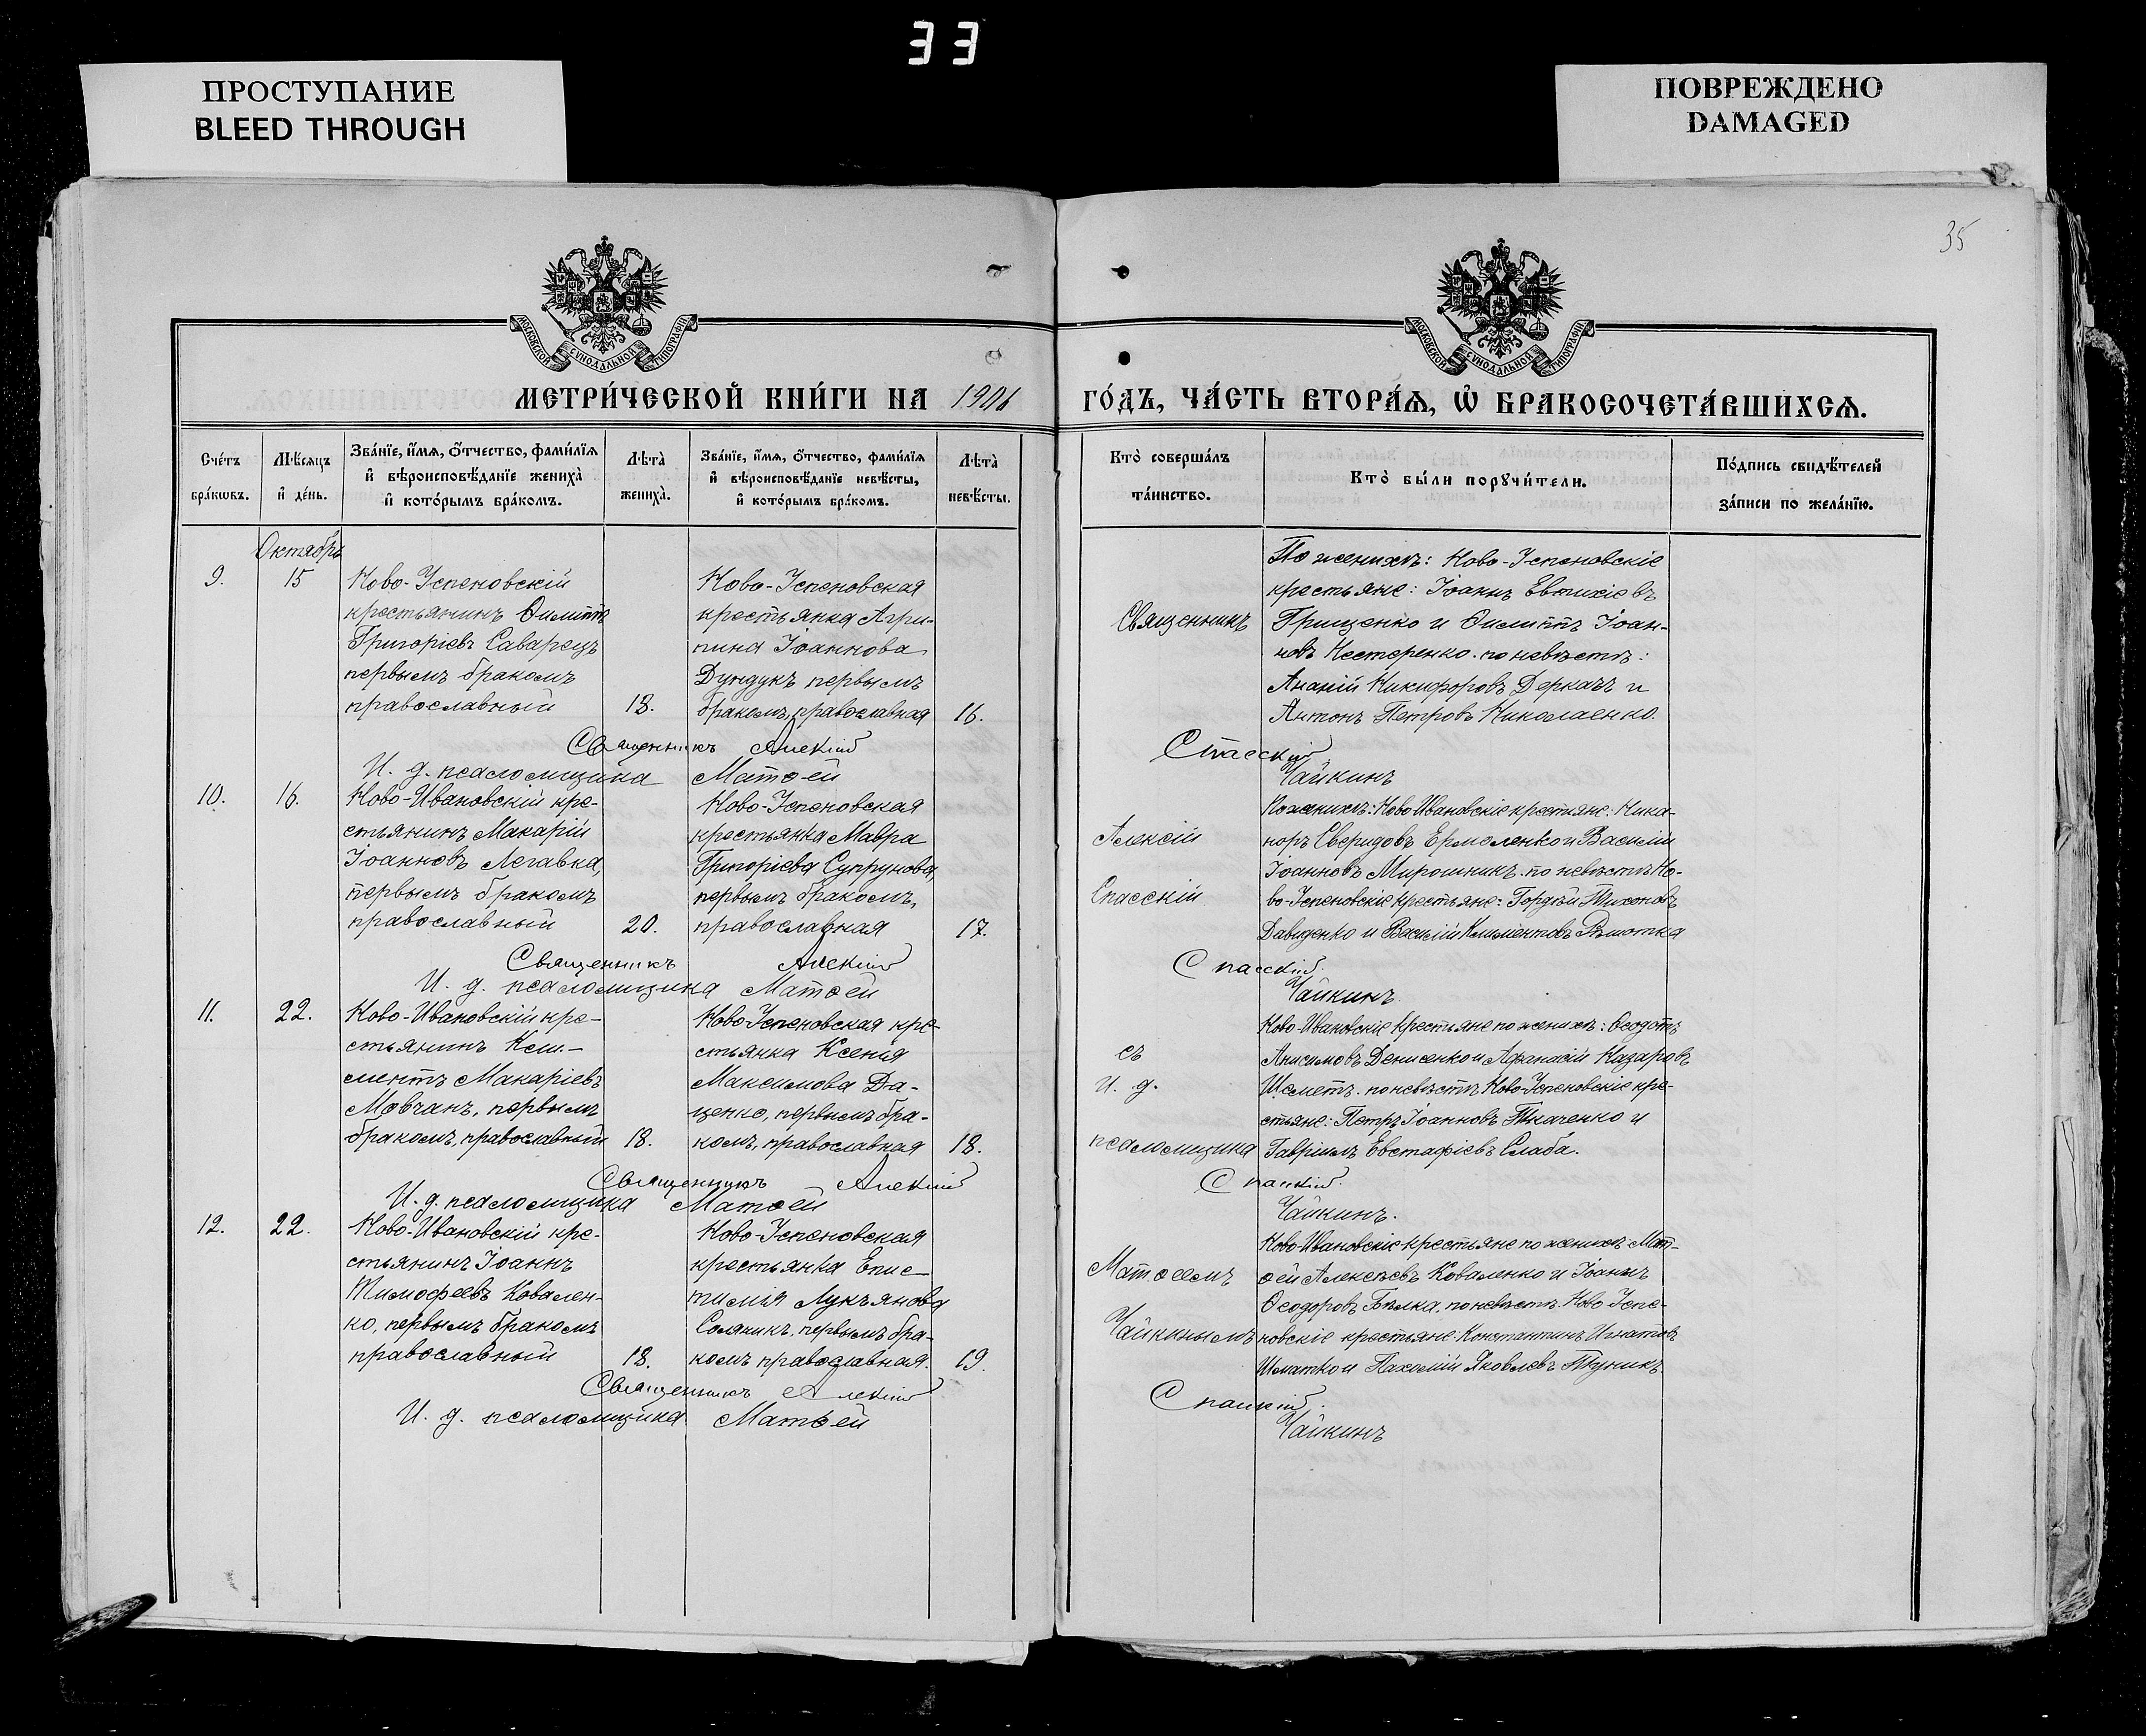 33
ПРОСТУПАНИЕ
BLEED THROUGH
ПОВРЕЖДЕНО
DAMAGED
35
МОСКОВСКОЙ СѴНОДАЛЬНОЙ ТИПОГРАФІИ
МОСКОВСКОЙ СѴНОДАЛЬНОЙ ТИПОГРАФІИ
МЕТРИ́ЧЕСКОЙ КНИ́ГИ НА 1906 ГО́ДЪ, ЧА́СТЬ ВТОРА́Ѧ, Ѽ БРАКОСОЧЕТА́ВШИХСѦ.
Сче́тъ бра́кѡвъ.
Мѣ́сѧцъ и де́нь.
Зва́нїе, и́мѧ, о́тчество, фами́лїѧ и вѣроисповѣ́данїе жениха̀ и кото́рымъ бра́комъ.
Лѣта̀ жениха̀.
Зва́нїе, и́мѧ, о́тчество, фами́лїѧ и вѣроисповѣ́данїе невѣ́сты, и кото́рымъ бра́комъ.
Лѣта̀ невѣ́сты.
Кто̀ соверша́лъ та́инство.
Кто̀ бы́ли порꙋчи́тели.
По́дпись свидѣ́телей за́писи по жела́нїю.
Октябрь
9.
15
Ново-Успеновскій
крестьянинъ Филиппъ
Григоріевъ Саварецъ
первымъ бракомъ
православный
18.
Ново-Успеновская
крестьянка Агри-
пина Іоаннова
Дундукъ первымъ
бракомъ, православная
16.
Священникъ
По женихѣ: Ново-Успеновскіе
крестьяне: Іоаннъ Евтихіевъ
Грищенко и Филиппъ Іоан-
новъ Нестеренко. по невѣстѣ:
Ананій Никифоровъ Деркачъ и
Антонъ Петровъ Николаенко.
Священникъ Алексій Спасскій
И. д. псаломщика Матѳей Чайкинъ
10.
16.
Ново-Ивановскій кре-
стьянинъ Макарій
Іоанновъ Легавка,
первымъ бракомъ
православный
20.
Ново-Успеновская
крестьянка Мавра
Григоріева Супрунова,
первымъ бракомъ,
православная
17.
Алексій
Спасскій
По женихѣ: Ново-Ивановскіе крестьяне: Ника-
норъ Свиридовъ Ермоленко и Василій
Іоанновъ Мирошникъ. по невѣстѣ Но-
во-Успеновскіе крестьяне: Гордѣй Тихоновъ
Давиденко и Василій Климентовъ Рѣшотка
Священникъ Алексій Спасскій.
И. д. псаломщика Матѳей Чайкинъ.
11.
22.
Ново-Ивановскій кре-
стьянинъ Кли-
ментъ Макаріевъ
Мовчанъ, первымъ
бракомъ, православный
18.
Ново-Успеновская кре-
стьянка Ксенія
Максимова Да-
ценко, первымъ бра-
комъ, православная
18.
съ
и. д.
псаломщика
Ново-Ивановскіе крестьяне по женихѣ: Ѳеодотъ
Анисимовъ Денисенко и Афанасій Назаровъ
Шеметъ. по невѣстѣ Ново-Успеновскіе кре-
стьяне: Петръ Іоанновъ Ткаченко и
Гавріилъ Евстафіевъ Слаба.
Священникъ Алексій Спасскій.
И. д. псаломщика Матѳей Чайкинъ.
12.
22.
Ново-Ивановскій кре-
стьянинъ Іоаннъ
Тимофеевъ Ковален-
ко, первымъ бракомъ
православный
18.
Ново-Успеновская
крестьянка Епис-
тимія Лукъянова
Соляникъ, первымъ бра-
комъ православная.
19.
Матѳеемъ
Чайкинымъ
Ново-Ивановскіе крестьяне по женихѣ Мат-
ѳей Алексѣевъ Коваленко и Іоаннъ
Ѳеодоровъ Бѣлка. по невѣстѣ. Ново-Успе-
новскіе крестьяне: Константинъ Игнатовъ
Шматко и Пахомій Яковлевъ
Священникъ Алексій Спасскій.
И. д. псаломщика Матѳей Чайкинъ